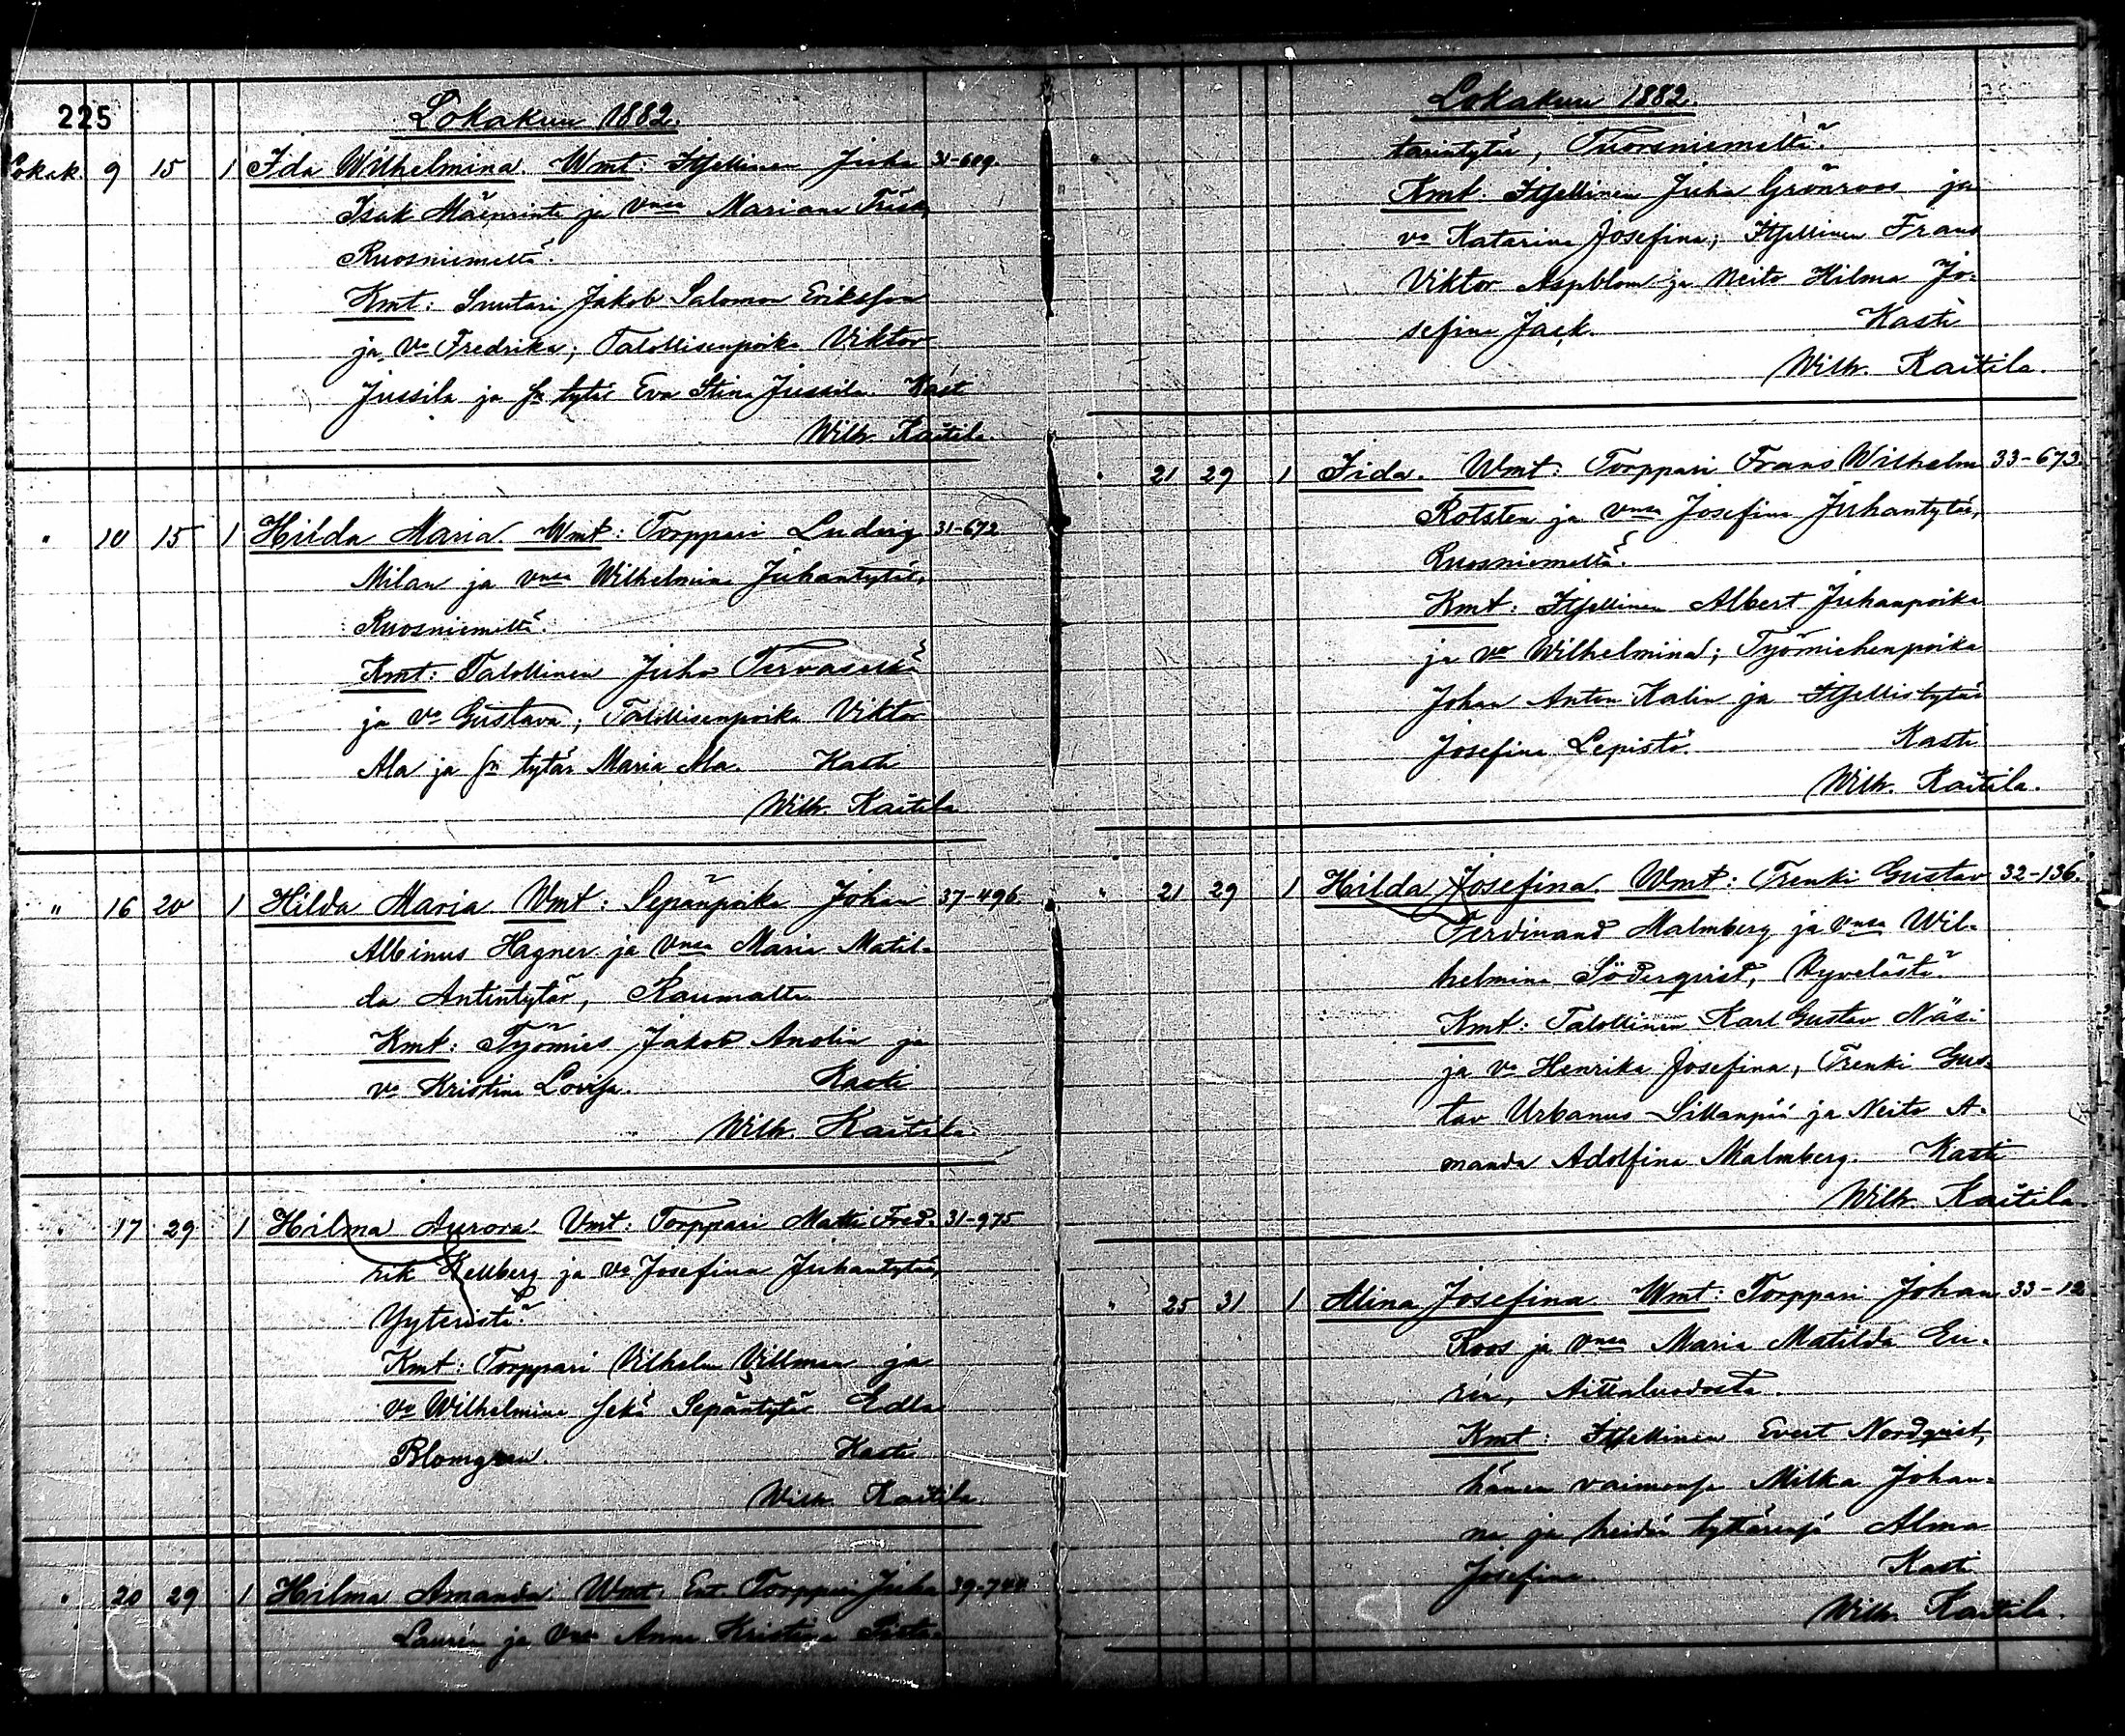 225
Lokakuu 1882.
Lokak. 9 15 1 Ida Wilhelmina. Wmt: Itsellinen Juha 31-609.
Isak Mäenrinta ja vnsa Mariana
Ruosniemeltä.
Kmt: Suutari Jakob Salomon Eriksson
ja vo Fredrika; Talollisenpoika Viktor
Jussila ja sn tytär Eva Stina Jussila. Kasti
Wilh. Kaitila.
" 10 15 1 Hilda Maria. Wmt: Torppari Ludvig 31-672
Milan ja vnsa Wilhelmina Juhantytär,
Ruosniemeltä.
Kmt: Talollinen Juho
ja vo Gustava; Talollisenpoika Viktor
Ala ja sn tytär Maria Ala. Kasti
Wilh. Kaitila
" 16 20 1 Hilda Maria Wmt: Sepänpoika Johan 37-496
Albinus Hagner ja vnsa Maria Matil-
da Antintytär, Raumalta
Kmt: Työmies Jakob Andlin ja
vo Kristina Lovisa. Kasti
Wilh. Kaitila.
" 17 29 1 Hilma Aurora. Vmt: Torppari Matti Fred- 31-975
rik Kellberg ja vo Josefina Juhantytär,
Yyteristä.
Kmt: Torppari Vilhelm Villman ja
vo Wilhelmina sekä Sepäntytär Edla
Blomgren. Kasti
Wilh. Kaitila.
" 20 29 1 Hilma Amanda. Wmt: Ent. Torppari Juha 39-744
Laurén ja vnsa Anna Kristina
Lokakuu 1882.
" tarintytär, Tuorsniemeltä.
Kmt: Itsellinen Juha Grönroos ja
vo Katarina Josefina; Itsellinen Frans
Viktor Aspblom ja Neito Hilma Jo-
sefina Jack. Kasti
Wilh. Kaitila.
" 21 29 1 Iida. Wmt: Torppari Frans Wilhelm 33-673.
Rotsten ja vnsa Josefina Juhantytär,
Ruosniemeltä.
Kmt: Itsellinen Albert Juhanpoika
ja vo Wilhelmina; Työmiehenpoika
Johan Anton Kalin ja Itsellistytär
Josefina Lepistö. Kasti
Wilh. Kaitila.
" 21 29 1 Hilda Josefina. Wmt: Trenki Gustav 32-136.
Ferdinand Malmberg ja vnsa Wil-
helmina Söderqvist, Hyvelästä.
Kmt: Talollinen Karl Gustav Näsi
ja vo Henrika Josefina, Trenki Gus-
tav Urbanus Sillanpää ja Neito A-
manda Adolfina Malmberg. Kasti
Wilh. Kaitila.
" 25 31 1 Alina Josefina. Wmt: Torppari Johan 33-12
Roos ja vnsa Maria Matilda En-
rén, Aittaluodosta.
Kmt: Itsellinen Evert Nordqvist,
hänen vaimonsa Milka Johan-
na ja heidän tyttärensä Alma
Josefina. Kasti
Wilh. Kaitila.